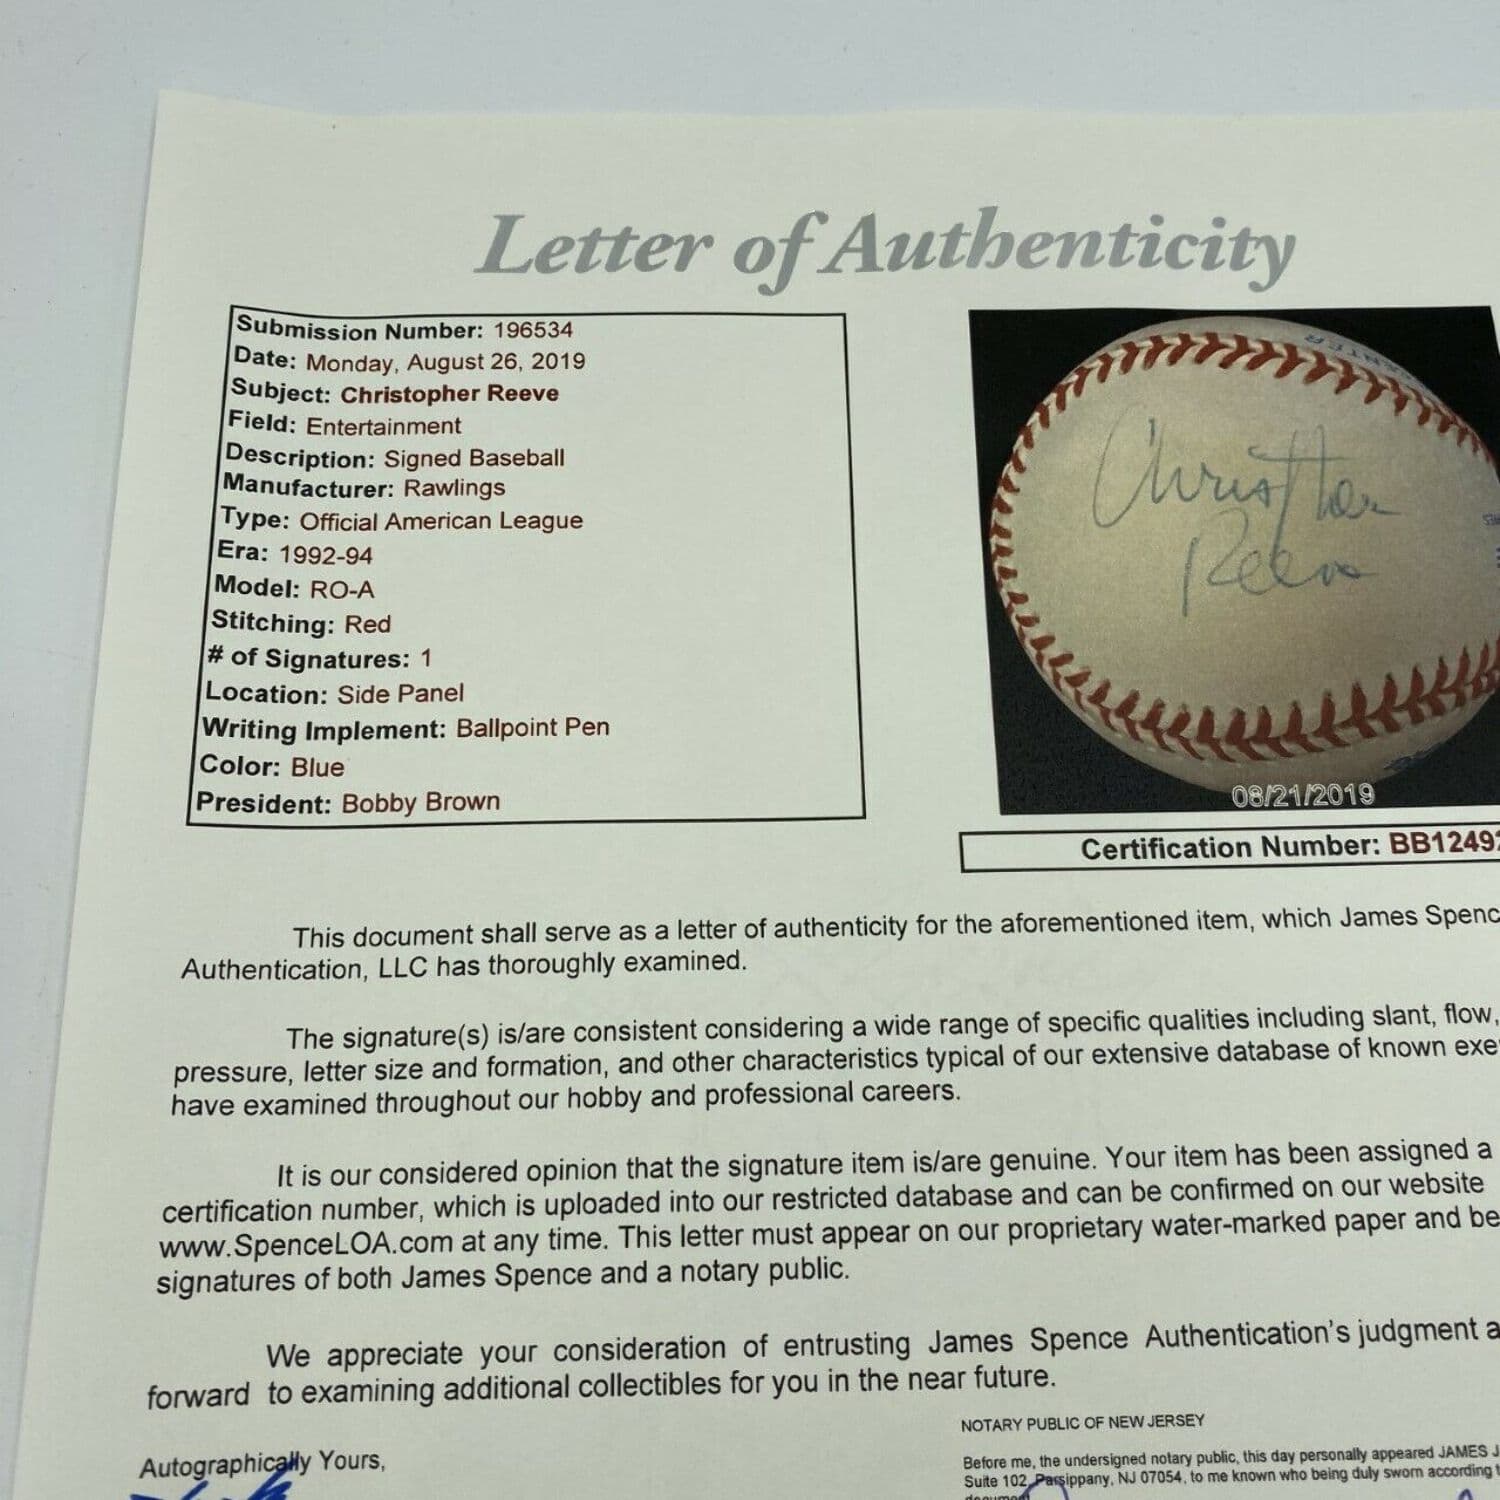 Letter of Authenticity
Submission Number: 196534
Date: Monday, August 26, 2019
Subject: Christopher Reeve
Field: Entertainment
Description: Signed Baseball
Manufacturer: Rawlings
Type: Official American League
Era: 1992-94
Model: RO-A
Stitching: Red
# of Signatures: 1
Location: Side Panel
Writing Implement: Ballpoint Pen
Color: Blue
President: Bobby Brown
Christopher
Reeve
08/21/2019
Certification Number: BB1249
This document shall serve as a letter of authenticity for the aforementioned item, which James Spenc
Authentication, LLC has thoroughly examined.
The signature(s) is/are consistent considering a wide range of specific qualities including slant, flow,
pressure, letter size and formation, and other characteristics typical of our extensive database of known exe
have examined throughout our hobby and professional careers.
It is our considered opinion that the signature item is/are genuine. Your item has been assigned a
certification number, which is uploaded into our restricted database and can be confirmed on our website
www.SpenceLOA.com at any time. This letter must appear on our proprietary water-marked paper and be
signatures of both James Spence and a notary public.
We appreciate your consideration of entrusting James Spence Authentication's judgment a
forward to examining additional collectibles for you in the near future.
NOTARY PUBLIC OF NEW JERSEY
Autographically Yours,
Before me, the undersigned notary public, this day personally appeared JAMES J
Suite 102, Parsippany, NJ 07054, to me known who being duly sworn according t